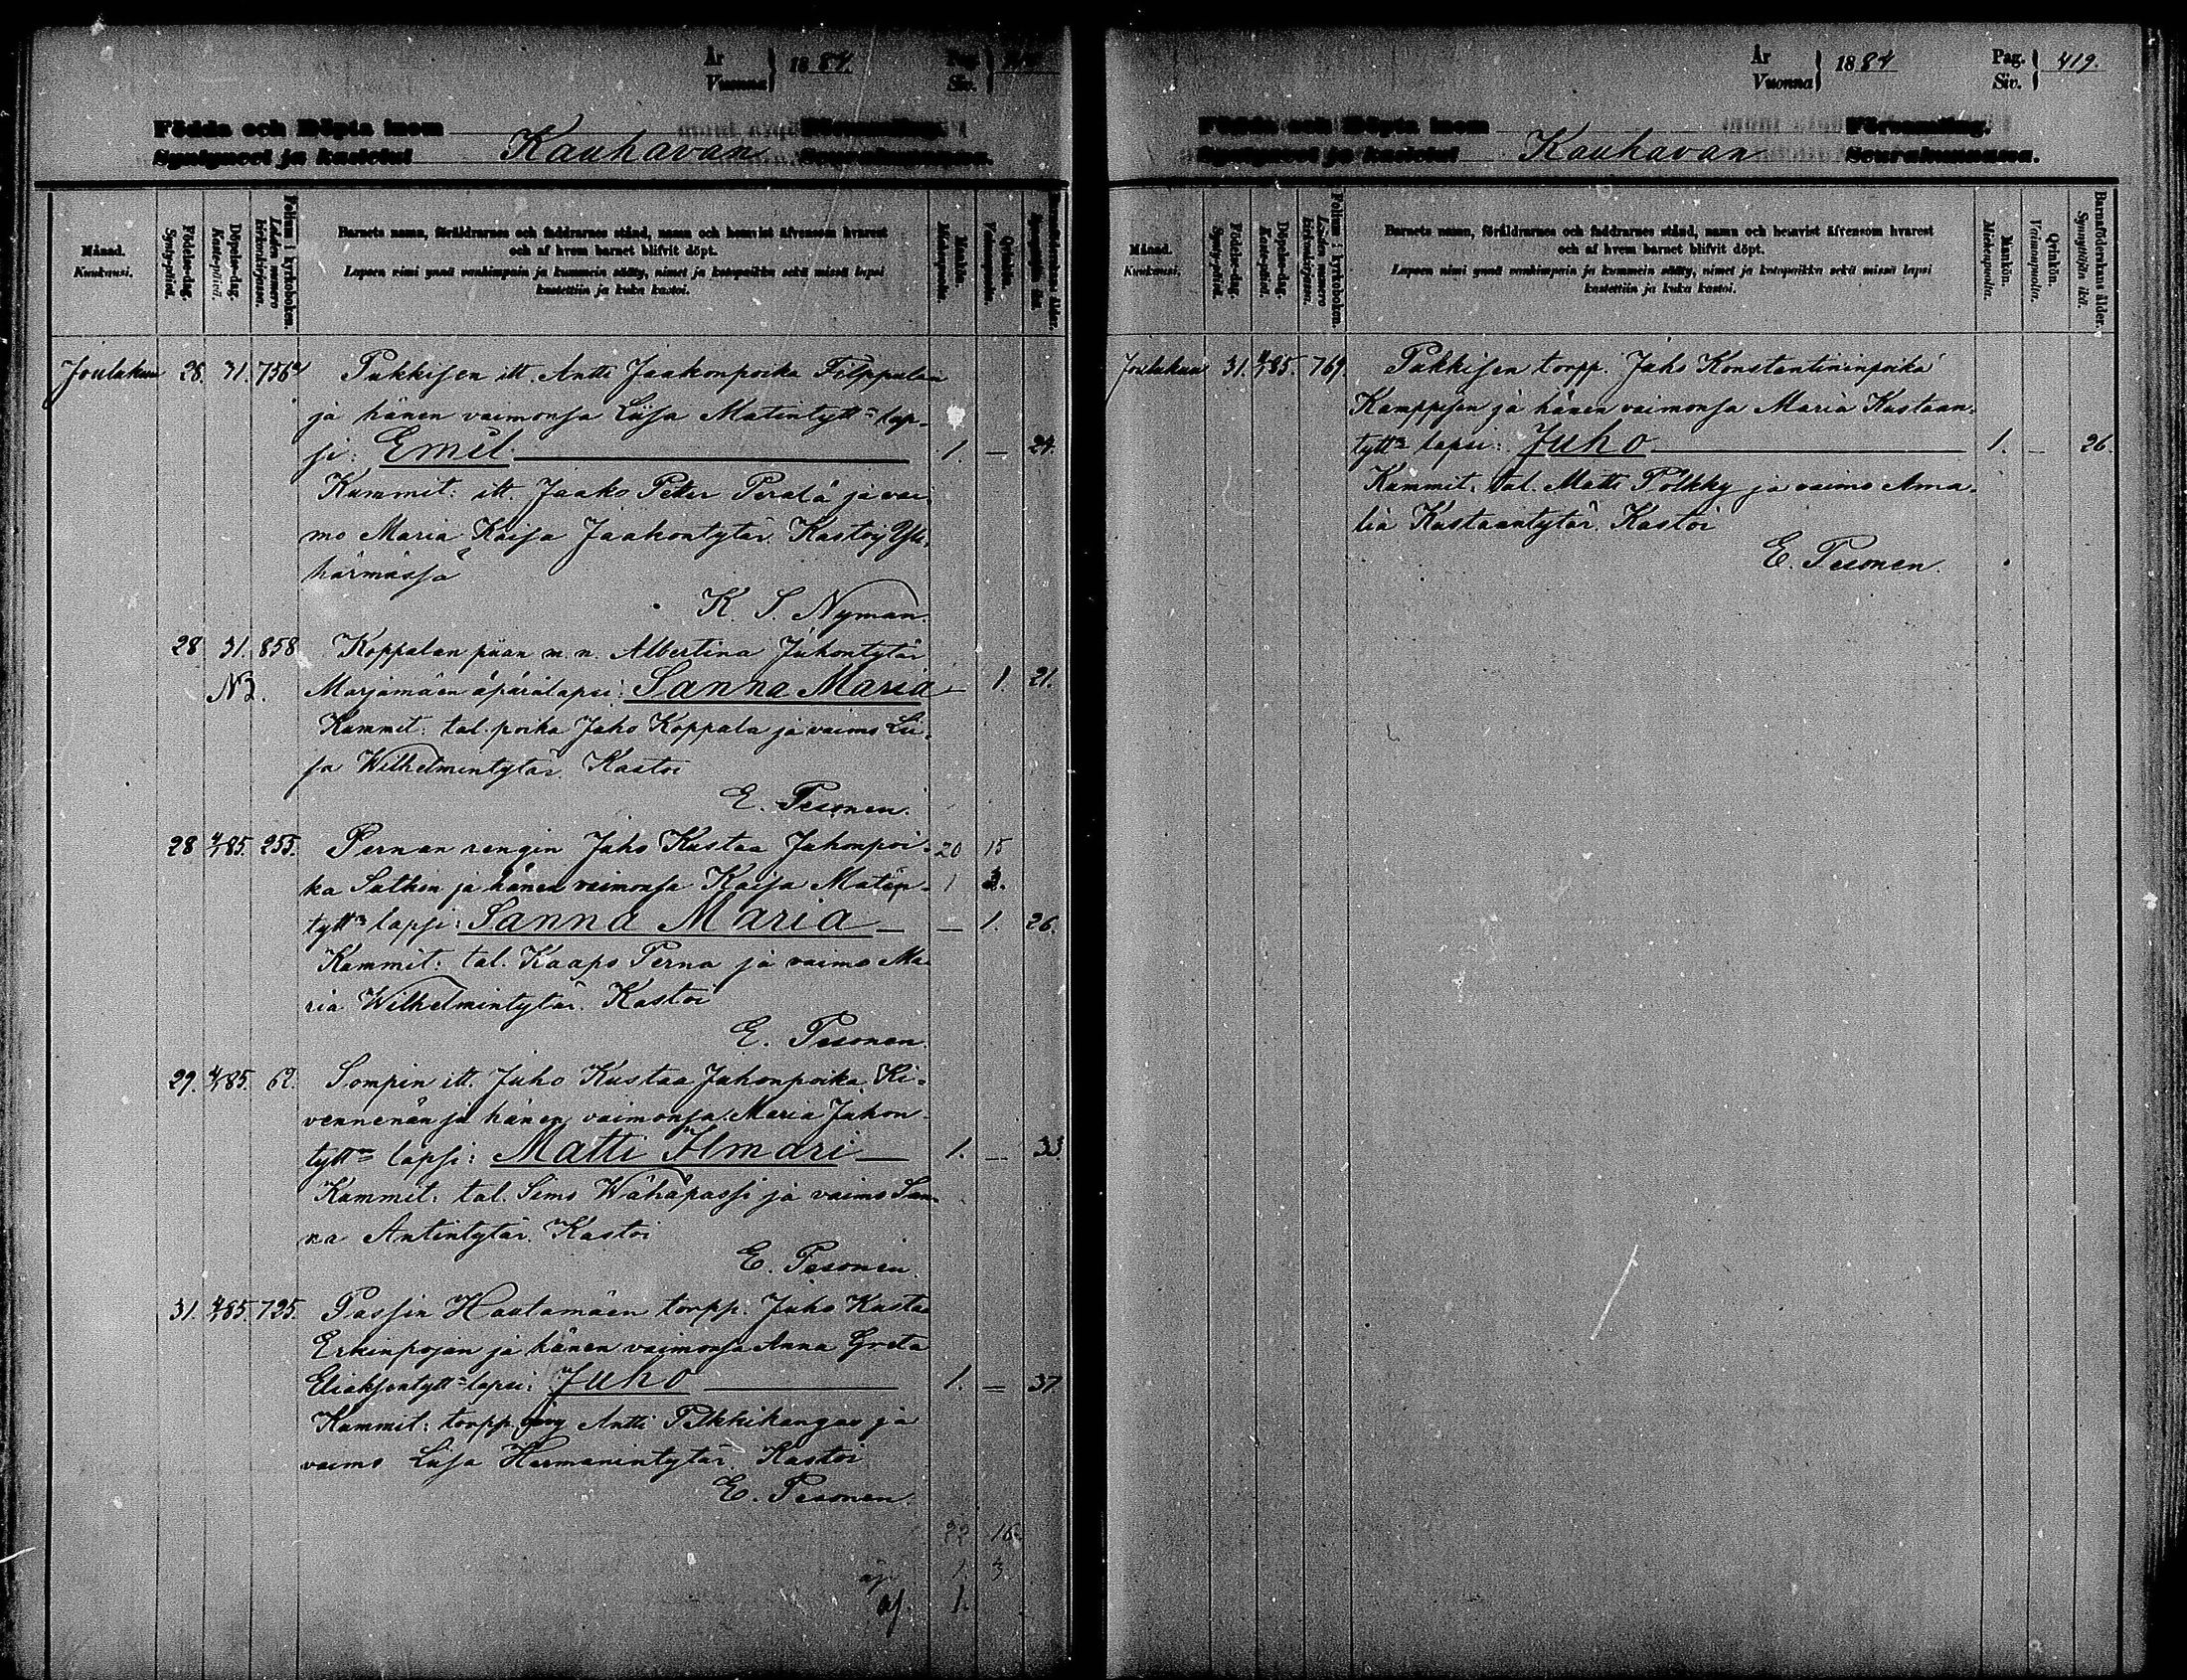 År
Vuonna } 1884.
Pag.
Siv. }
Födda och Döpta inom Församling.
Syntyneet ja kastetut Kauhavan Seurakunnassa.
Månad.
Kuukausi.
Födelse-dag.
Synty-päivä.
Döpelse-dag.
Kaste-päivä.
Folium i kyrkoboken.
Lehden numero kirkonkirjassa.
Barnets namn, föräldrarnes och faddrarnes stånd, namn och hemvist äfvensom hvarest
och af hvem barnet blifvit döpt.
Lapsen nimi ynnä vanhimpain ja kummein sääty, nimet ja kotopaikka sekä missä lapsi
kastettiin ja kuka kastoi.
Mankön.
Miehenpuolta.
Qvinkön.
Vaimonpuolta.
Barnaföderskans ålder.
Synnyttäjän ikä.
Joulukuu 28. 31. 756 Pukkisen itt. Antti Jaakonpoika Filppulan
ja hänen vaimonsa Liisa Matintytt:n lap-
si: Emil 1. — 24.
Kummit: itt. Jaako Petter Perälä ja vai-
mo Maria Kaisa Jaakontytär. Kastoi Yli-
härmässä
K. S. Nyman.
28 31. 858 Koppalan piian n. n. Albertina Juhontytär
N3. Marjamäen äpärälapsi: Sanna Maria — 1. 21.
Kummit: tal. poika Juho Koppala ja vaimo Lii-
sa Wilhelmintytär. Kastoi
E. Pesonen.
28 4/1 85. 255. Pernan rengin Juho Kustaa Juhonpoi- 20 15
ka Luthin ja hänen vaimonsa Kaisa Matin- 1 3.
tytt:n lapsi: Sanna Maria — — 1. 26.
Kummit: tal. Kaapo Perna ja vaimo Ma-
ria Wilhelmintytär. Kastoi
E. Pesonen.
29. 4/1 85. 62. Sompin itt. Juho Kustaa Juhonpoika Ki-
vennenän ja hänen vaimonsa Maria Juhon-
tytt:n lapsi: Matti Ilmari — 1. — 33
Kummit: tal. Simo Wähäpassi ja vaimo San-
na Antintytär. Kastoi
E. Pesonen.
31. 4/1 85. 725. Passin Hautamäen torpp. Juho Kustaa
Erkinpojan ja hänen vaimonsa Anna Greta
Eliaksentytt:n lapsi: Juho 1. — 37
Kummit: torpp. Antti Pelkkikangas ja
vaimo Liisa Hermanintytär. Kastoi
E. Pesonen.
22 16.
äp. 1. 3
1.
År
Vuonna } 1884
Pag.
Siv. } 419.
Födda och Döpta inom Församling.
Syntyneet ja kastetut Kauhavan Seurakunnassa.
Månad.
Kuukausi.
Födelse-dag.
Synty-päivä.
Döpelse-dag.
Kaste-päivä.
Folium i kyrkoboken.
Lehden numero kirkonkirjassa.
Barnets namn, föräldrarnes och faddrarnes stånd, namn och hemvist äfvensom hvarest
och af hvem barnet blifvit döpt.
Lapsen nimi ynnä vanhimpain ja kummein sääty, nimet ja kotopaikka sekä missä lapsi
kastettiin ja kuka kastoi.
Mankön.
Miehenpuolta.
Qvinkön.
Vaimonpuolta.
Barnaföderskans ålder.
Synnyttäjän ikä.
Joulukuu 31. 4/1 85. 769. Pukkisen torpp. Juho Konstantininpoika
Kamppisen ja hänen vaimonsa Maria Kustaan-
tytt:n lapsi: Juho 1. — 26.
Kummit: tal. Matti Pölkky ja vaimo Ama-
lia Kustaantytär. Kastoi
E. Pesonen.